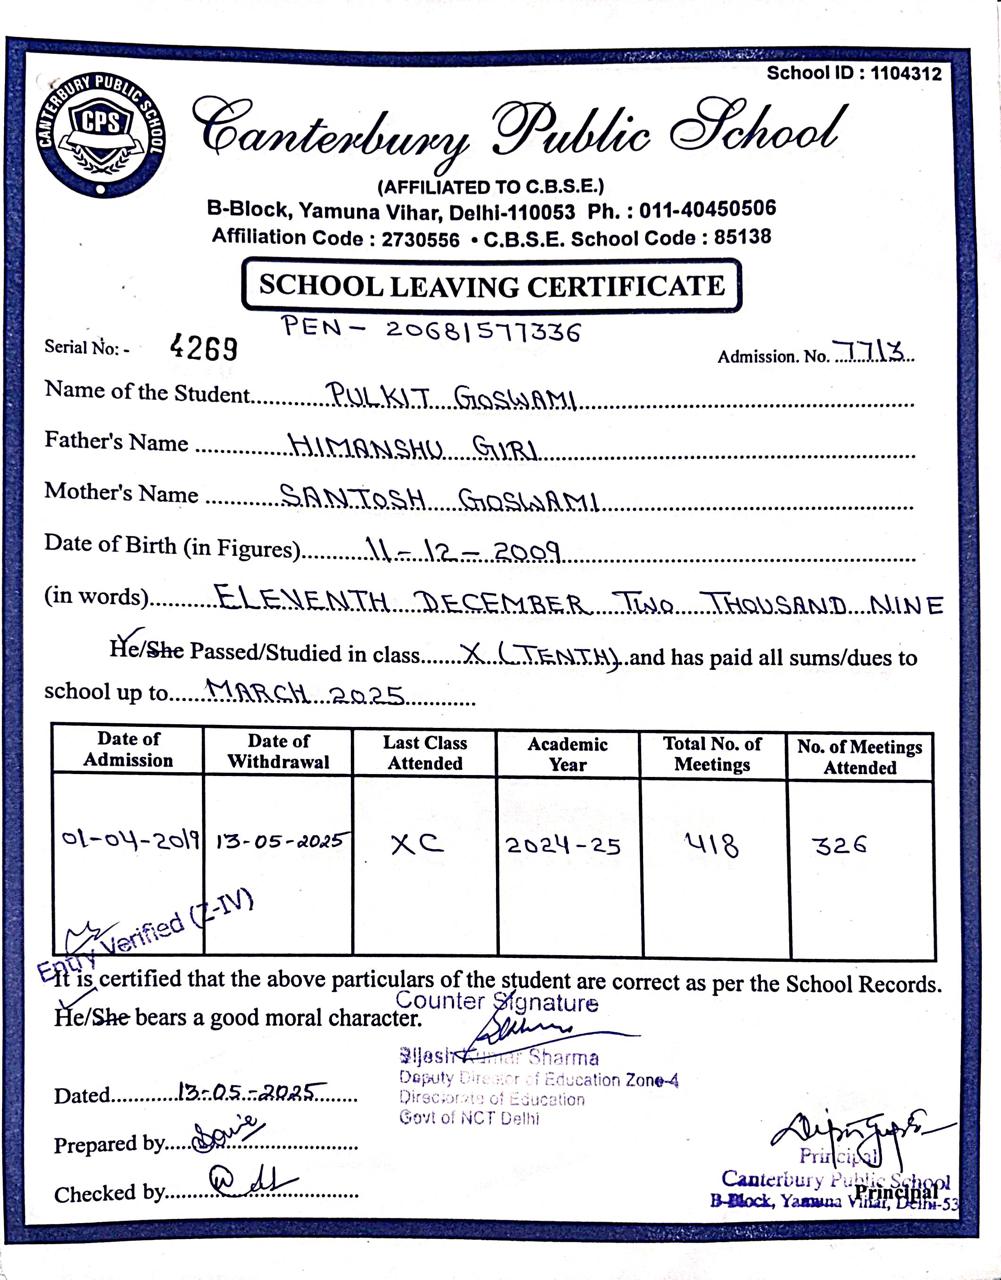 School ID : 1104312
CANTERBURY PUBLIC SCHOOL
CPS
Canterbury Public School
(AFFILIATED TO C.B.S.E.)
B-Block, Yamuna Vihar, Delhi-110053 Ph. : 011-40450506
Affiliation Code : 2730556 • C.B.S.E. School Code : 85138
SCHOOL LEAVING CERTIFICATE
PEN- 20681577336
Serial No:- 4269 Admission. No. 7713
Name of the Student PULKIT GOSWAMI
Father's Name HIMANSHU GIRI
Mother's Name SANTOSH GOSWAMI
Date of Birth (in Figures) 11-12-2009
(in words) ELEVENTH DECEMBER TWO THOUSAND NINE
He/She Passed/Studied in class X (TENTH) and has paid all sums/dues to
school up to MARCH 2025
Date of Admission Date of Withdrawal Last Class Attended Academic Year Total No. of Meetings No. of Meetings Attended
01-04-2019 13-05-2025 X C 2024-25 418 326
Entry Verified (Z-IV)
It is certified that the above particulars of the student are correct as per the School Records.
Counter Signature
He/She bears a good moral character.
Sharma
Deputy Director of Education Zone-4
Directorate of Education
Govt of NCT Delhi
Dated 13-05-2025
Prepared by
Checked by
Principal
Canterbury Public School
Principal
B-Block, Yamuna Vihar, Delhi-53